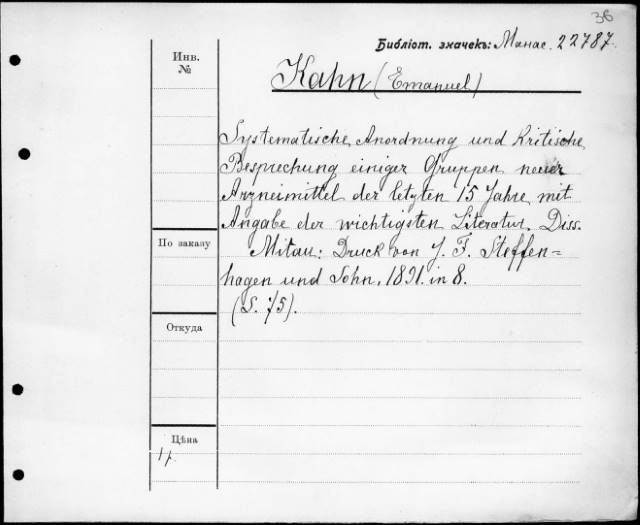 36
Библіот. значекъ: Манас. 22787.
Инв.
№
Kahn (Emanuel)
Systematische Anordnung und kritische
Besprechung einiger Gruppen neuer
Arzneimittel der letzten 15 Jahre mit
Angabe der wichtigsten Literatur. Diss.
По заказу
Mitau: Druck von J. F. Steffen=
hagen und Sohn. 1891. in 8.
(S. 75).
Откуда
Цѣна
1 р.